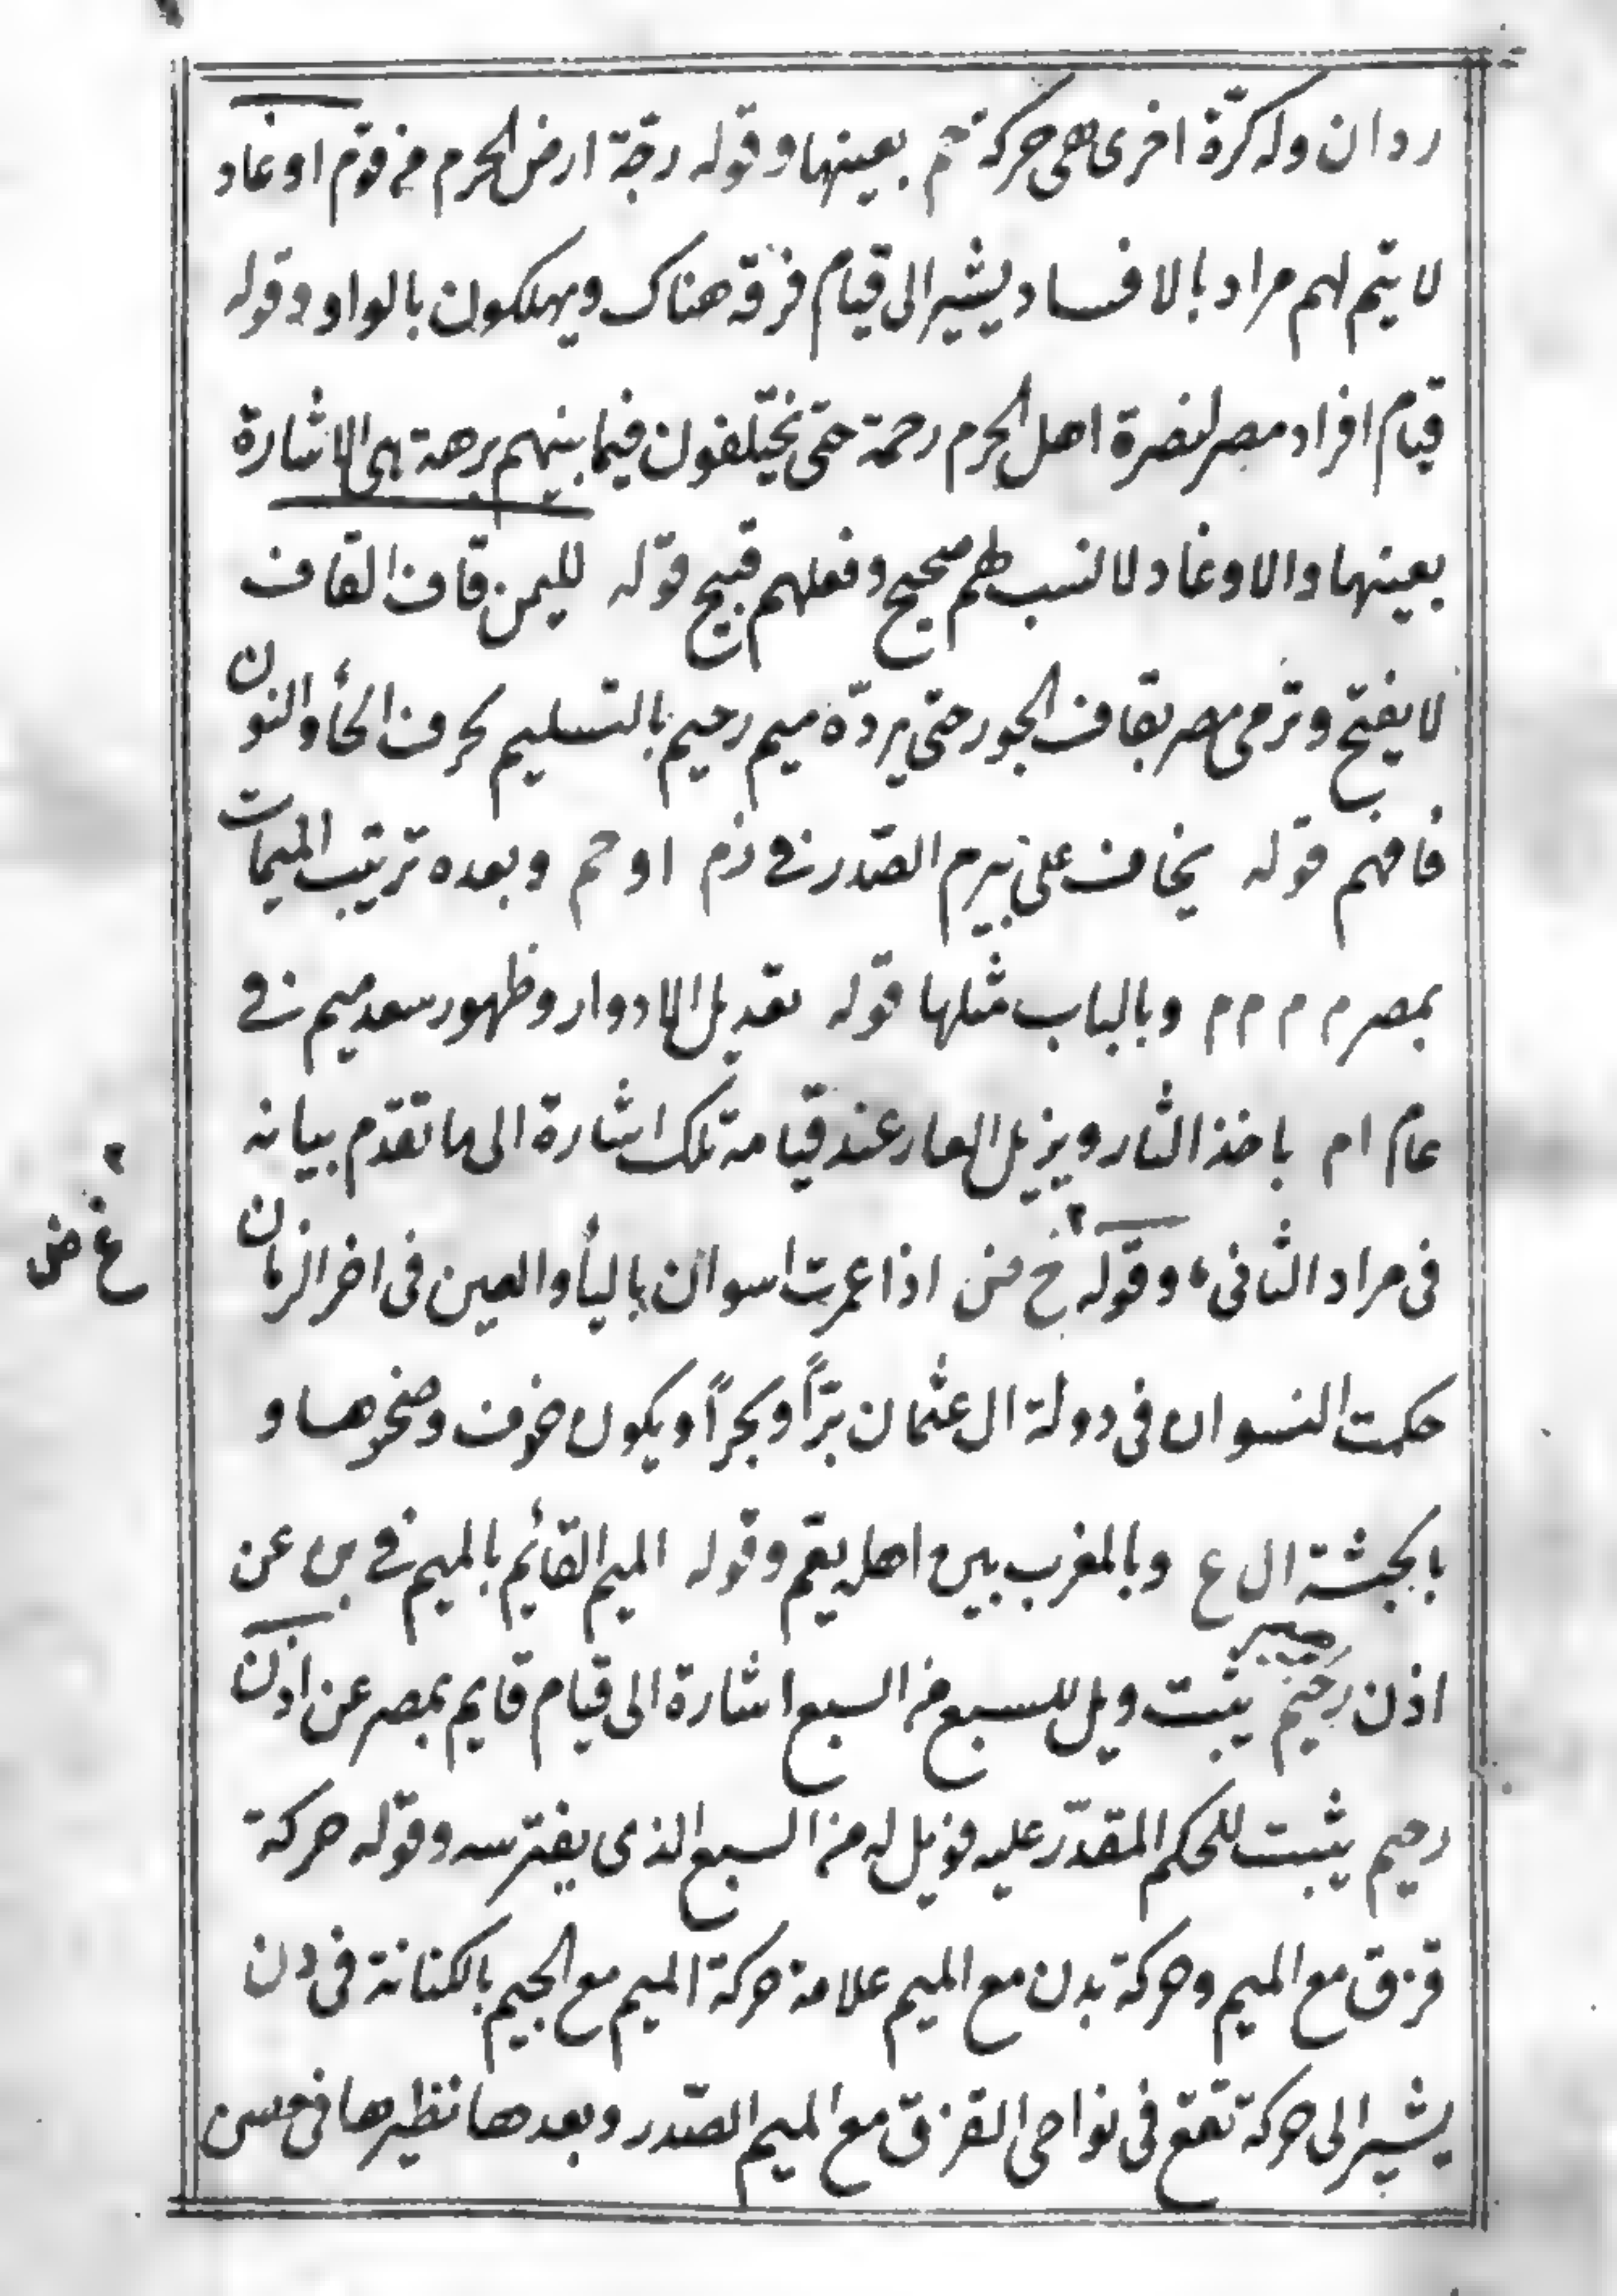 ردان وله كرّة اخرى هى حركة تتم بعينها وقوله رجّة ارض الحرم من قوم اوغاد
لا يتم لهم مراد بالافساد يشير الى قيام فرقه هناك ويهلكون بالواو وقوله
قيام افراد مصر لنصرة اهل الحرم رحمة حتى يختلفون فيما بينهم برهة هى الاشارة
بعينها والاوغاد لا نسب لهم صحيح وفعلهم قبيح قوله لليمن قاف القاف
لا يفتح وترمى مصر بقاف الجور حتى يردّه ميم رحيم بالتسليم لحرف الحأ والنون
فافهم قوله يخاف على بيرم الصّدر فى زم اوحم وبعده ترتيب الميمات
بمصر م م م م وبالباب مثلها قوله تعديل الادوار وظهور سعد ميم فى
عام ام باخذ الثار ويزيل العار عند قيامة تلك اشارة الى ما تقدّم بيانه
فى مراد الثانى، وقوله خ من اذا عمرت اسوان باليأ والعين فى اخر الزمان
حكمت النسوان فى دولة ال عثمان برّاً وبحراً ويكون خوف وصخرها و
بالجثة ال ع وبالمغرب بين اهله يقم وقوله الميم القائم بالميم فى عن
اذن رحيم يثبت ويل للسبع من السبع اشارة الى قيام قايم بمصر عن اذن
رحيم يثبت للحكم المقدّر عليه فويل له من السبع الذى يفترسه وقوله حركة
قزق مع الميم وحركة بدن مع الميم علامة حركة الميم مع الجيم بالكنانة فى دن
يشير الى حركة تقع فى نواحى القزق مع الميم الصّدر وبعدها نظيرها فى
غ ض